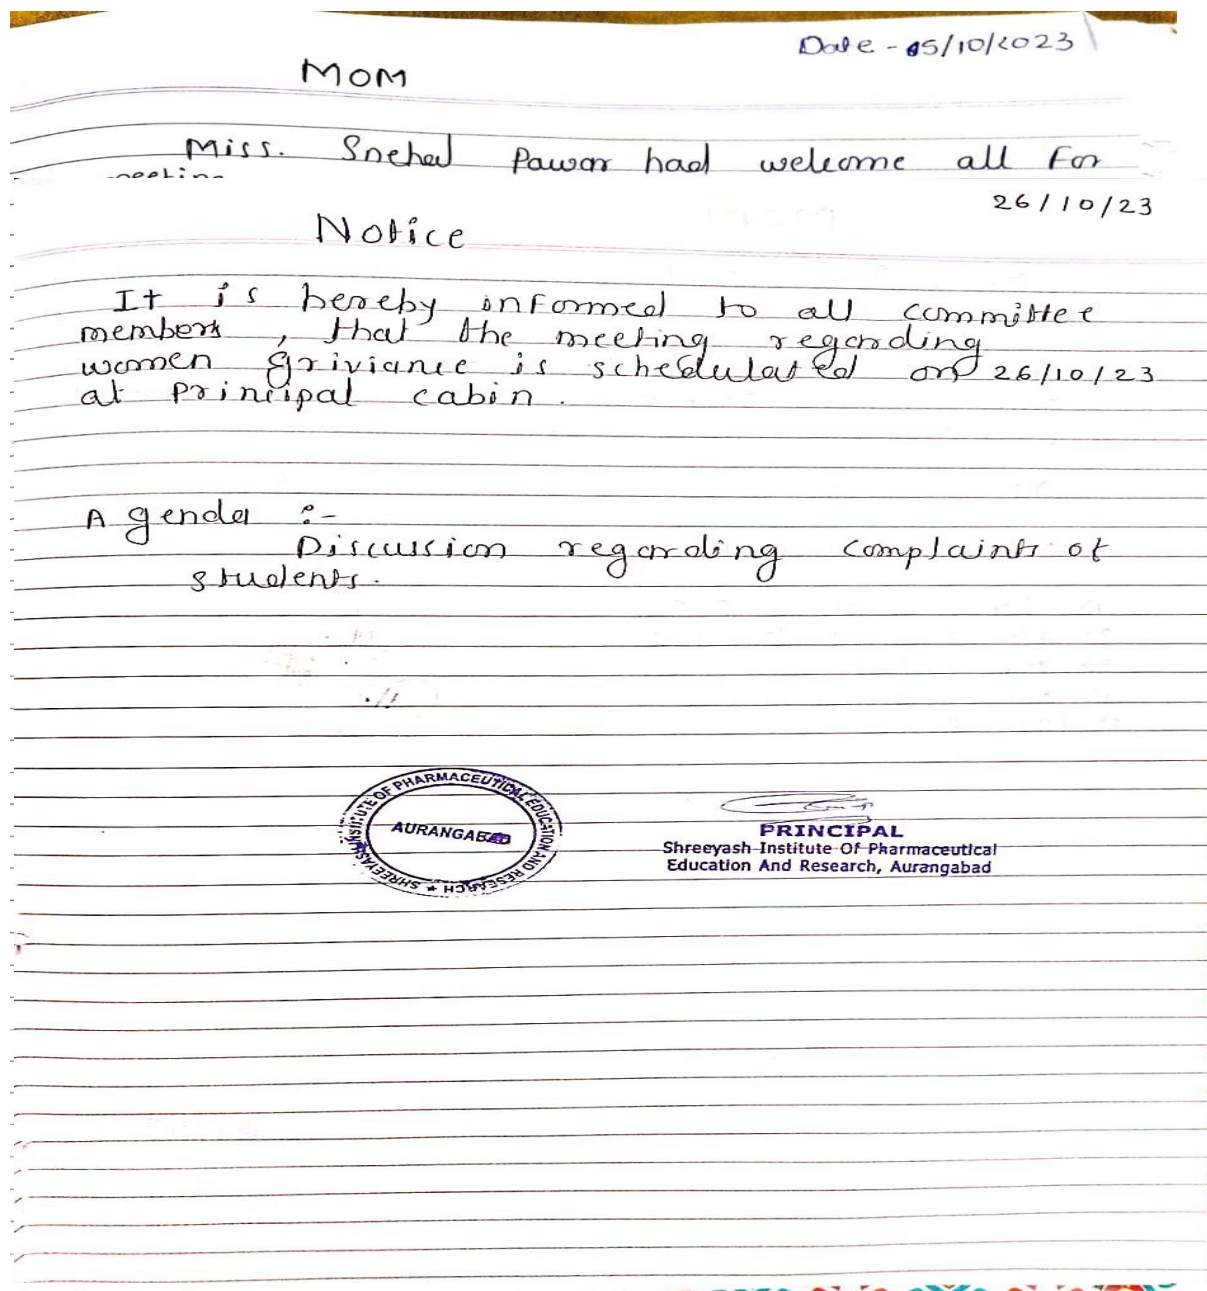 Date - 05/10/2023
MOM
Miss. Snehal Pawar had welcome all For
meeting
26/10/23
Notice
It is hereby informed to all committee
members, that the meeting regarding
women griviance is schedulated on 26/10/23
at Principal cabin.
Agenda :-
Discussion regarding complaints of
students.
SHREEYASH INSTITUTE OF PHARMACEUTICAL EDUCATION AND RESEARCH ★
AURANGABAD
PRINCIPAL
Shreeyash Institute Of Pharmaceutical
Education And Research, Aurangabad